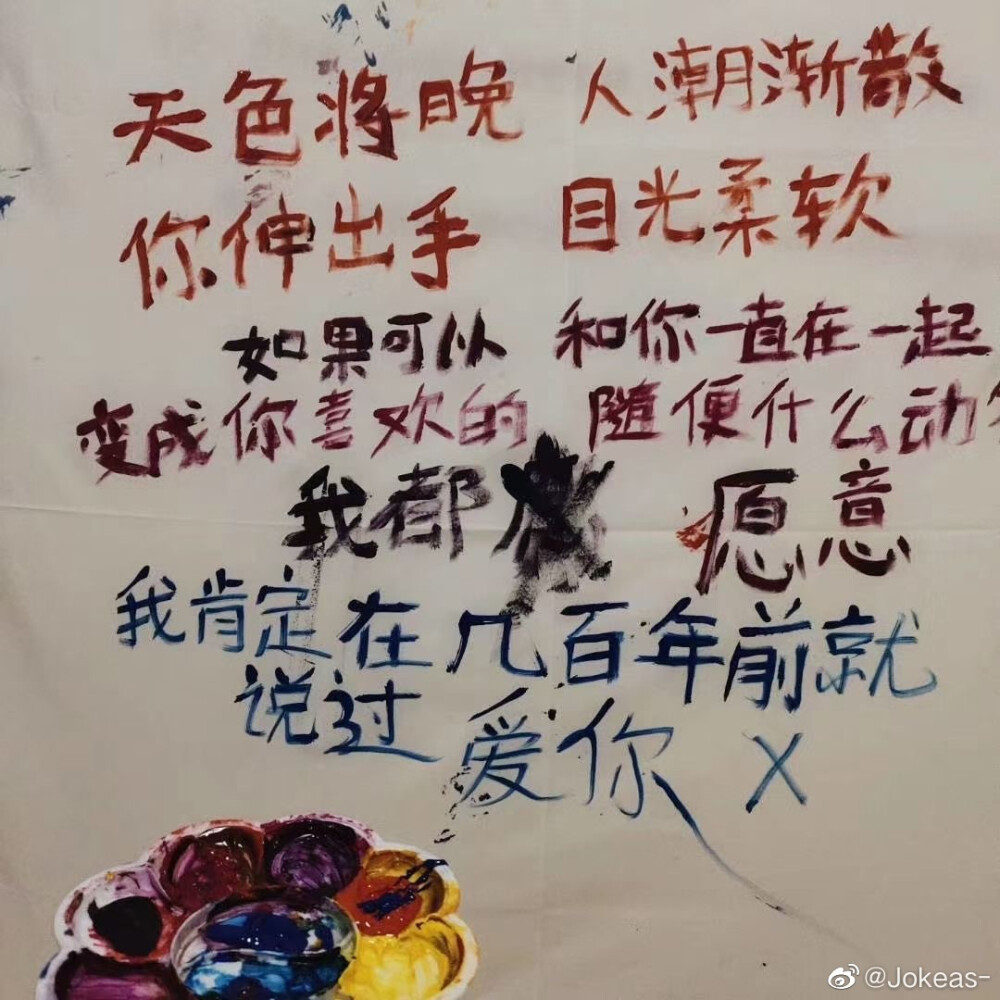 天色将晚 人潮渐散
你伸出手 目光柔软
如果可以 和你一直在一起
变成你喜欢的 随便什么动
我都 愿意
我肯定在几百年前就
说过爱你 X
@Jokeas-